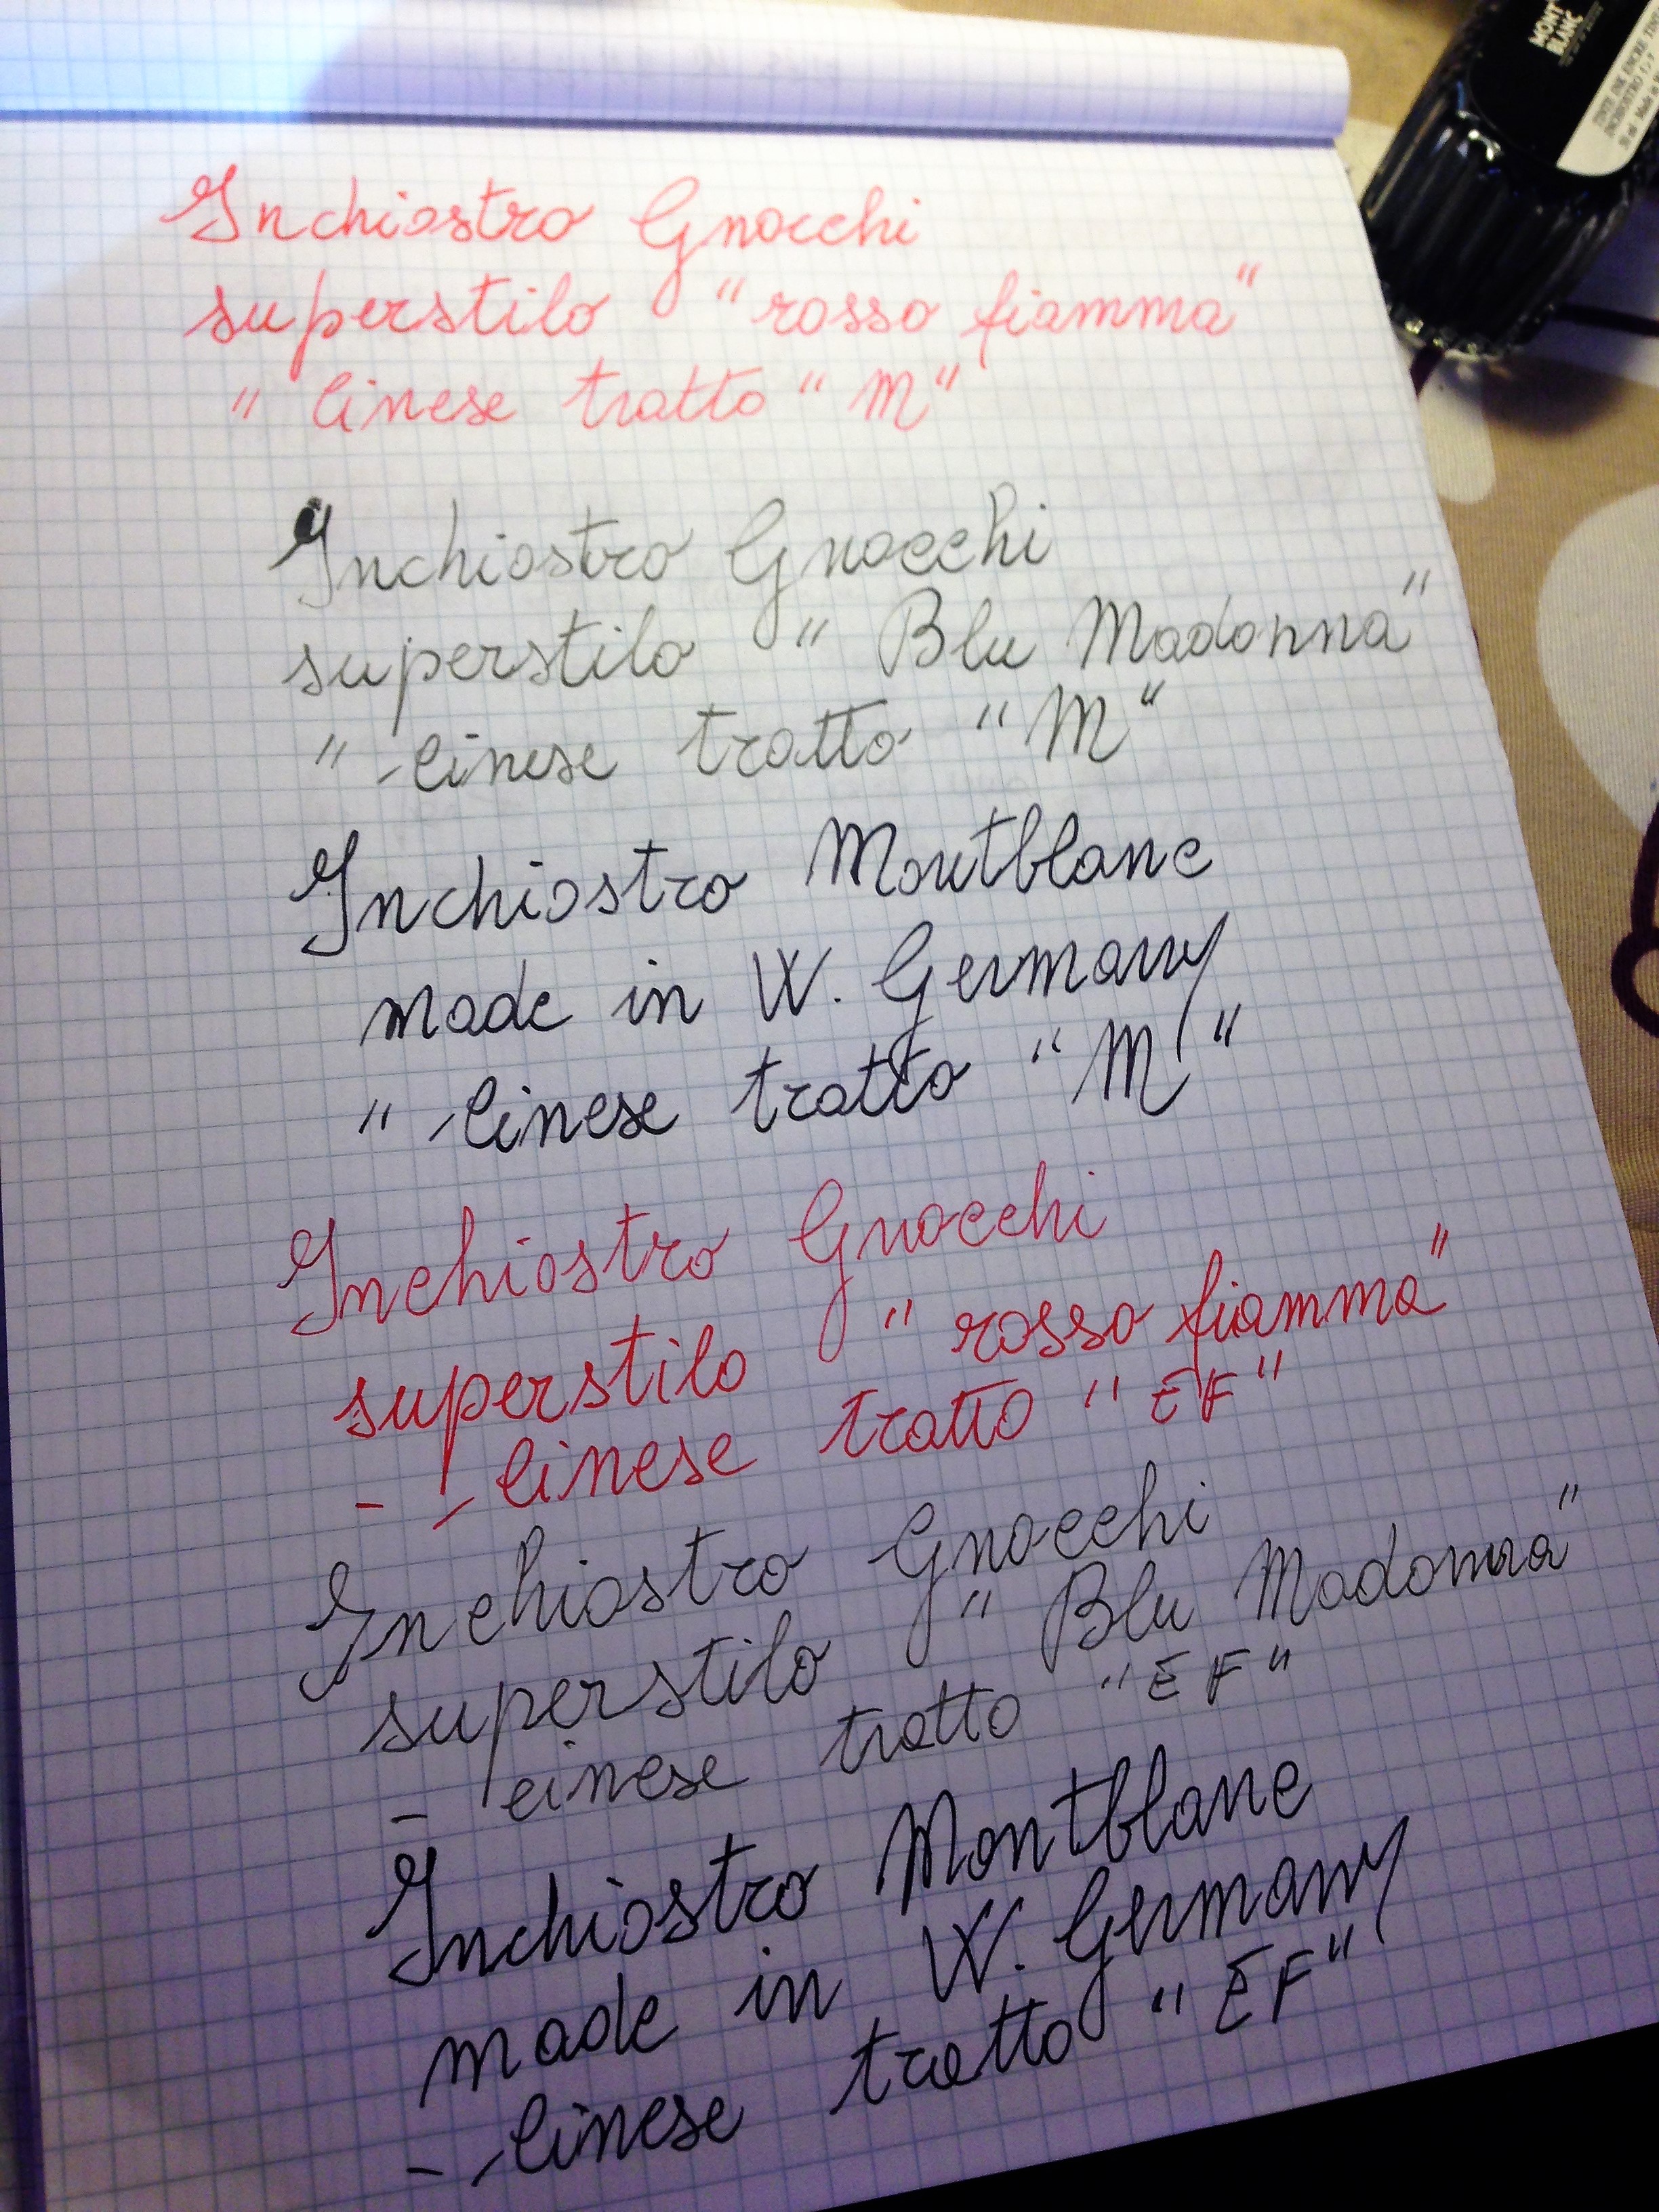 Inchiostro Gnocchi
superstilo "rosso fiamma"
" Cinese tratto "M"
Inchiostro Gnocchi
superstilo "Blu Madonna"
" Cinese tratto "M"
Inchiostro Montblanc
made in W. Germany
" Cinese tratto "M"
Inchiostro Gnocchi
superstilo "rosso fiamma"
- Cinese tratto "EF"
Inchiostro Gnocchi
superstilo "Blu Madonna"
- cinese tratto "EF"
Inchiostro Montblanc
made in W. Germany
- Cinese tratto "EF"
MONT
BLANC